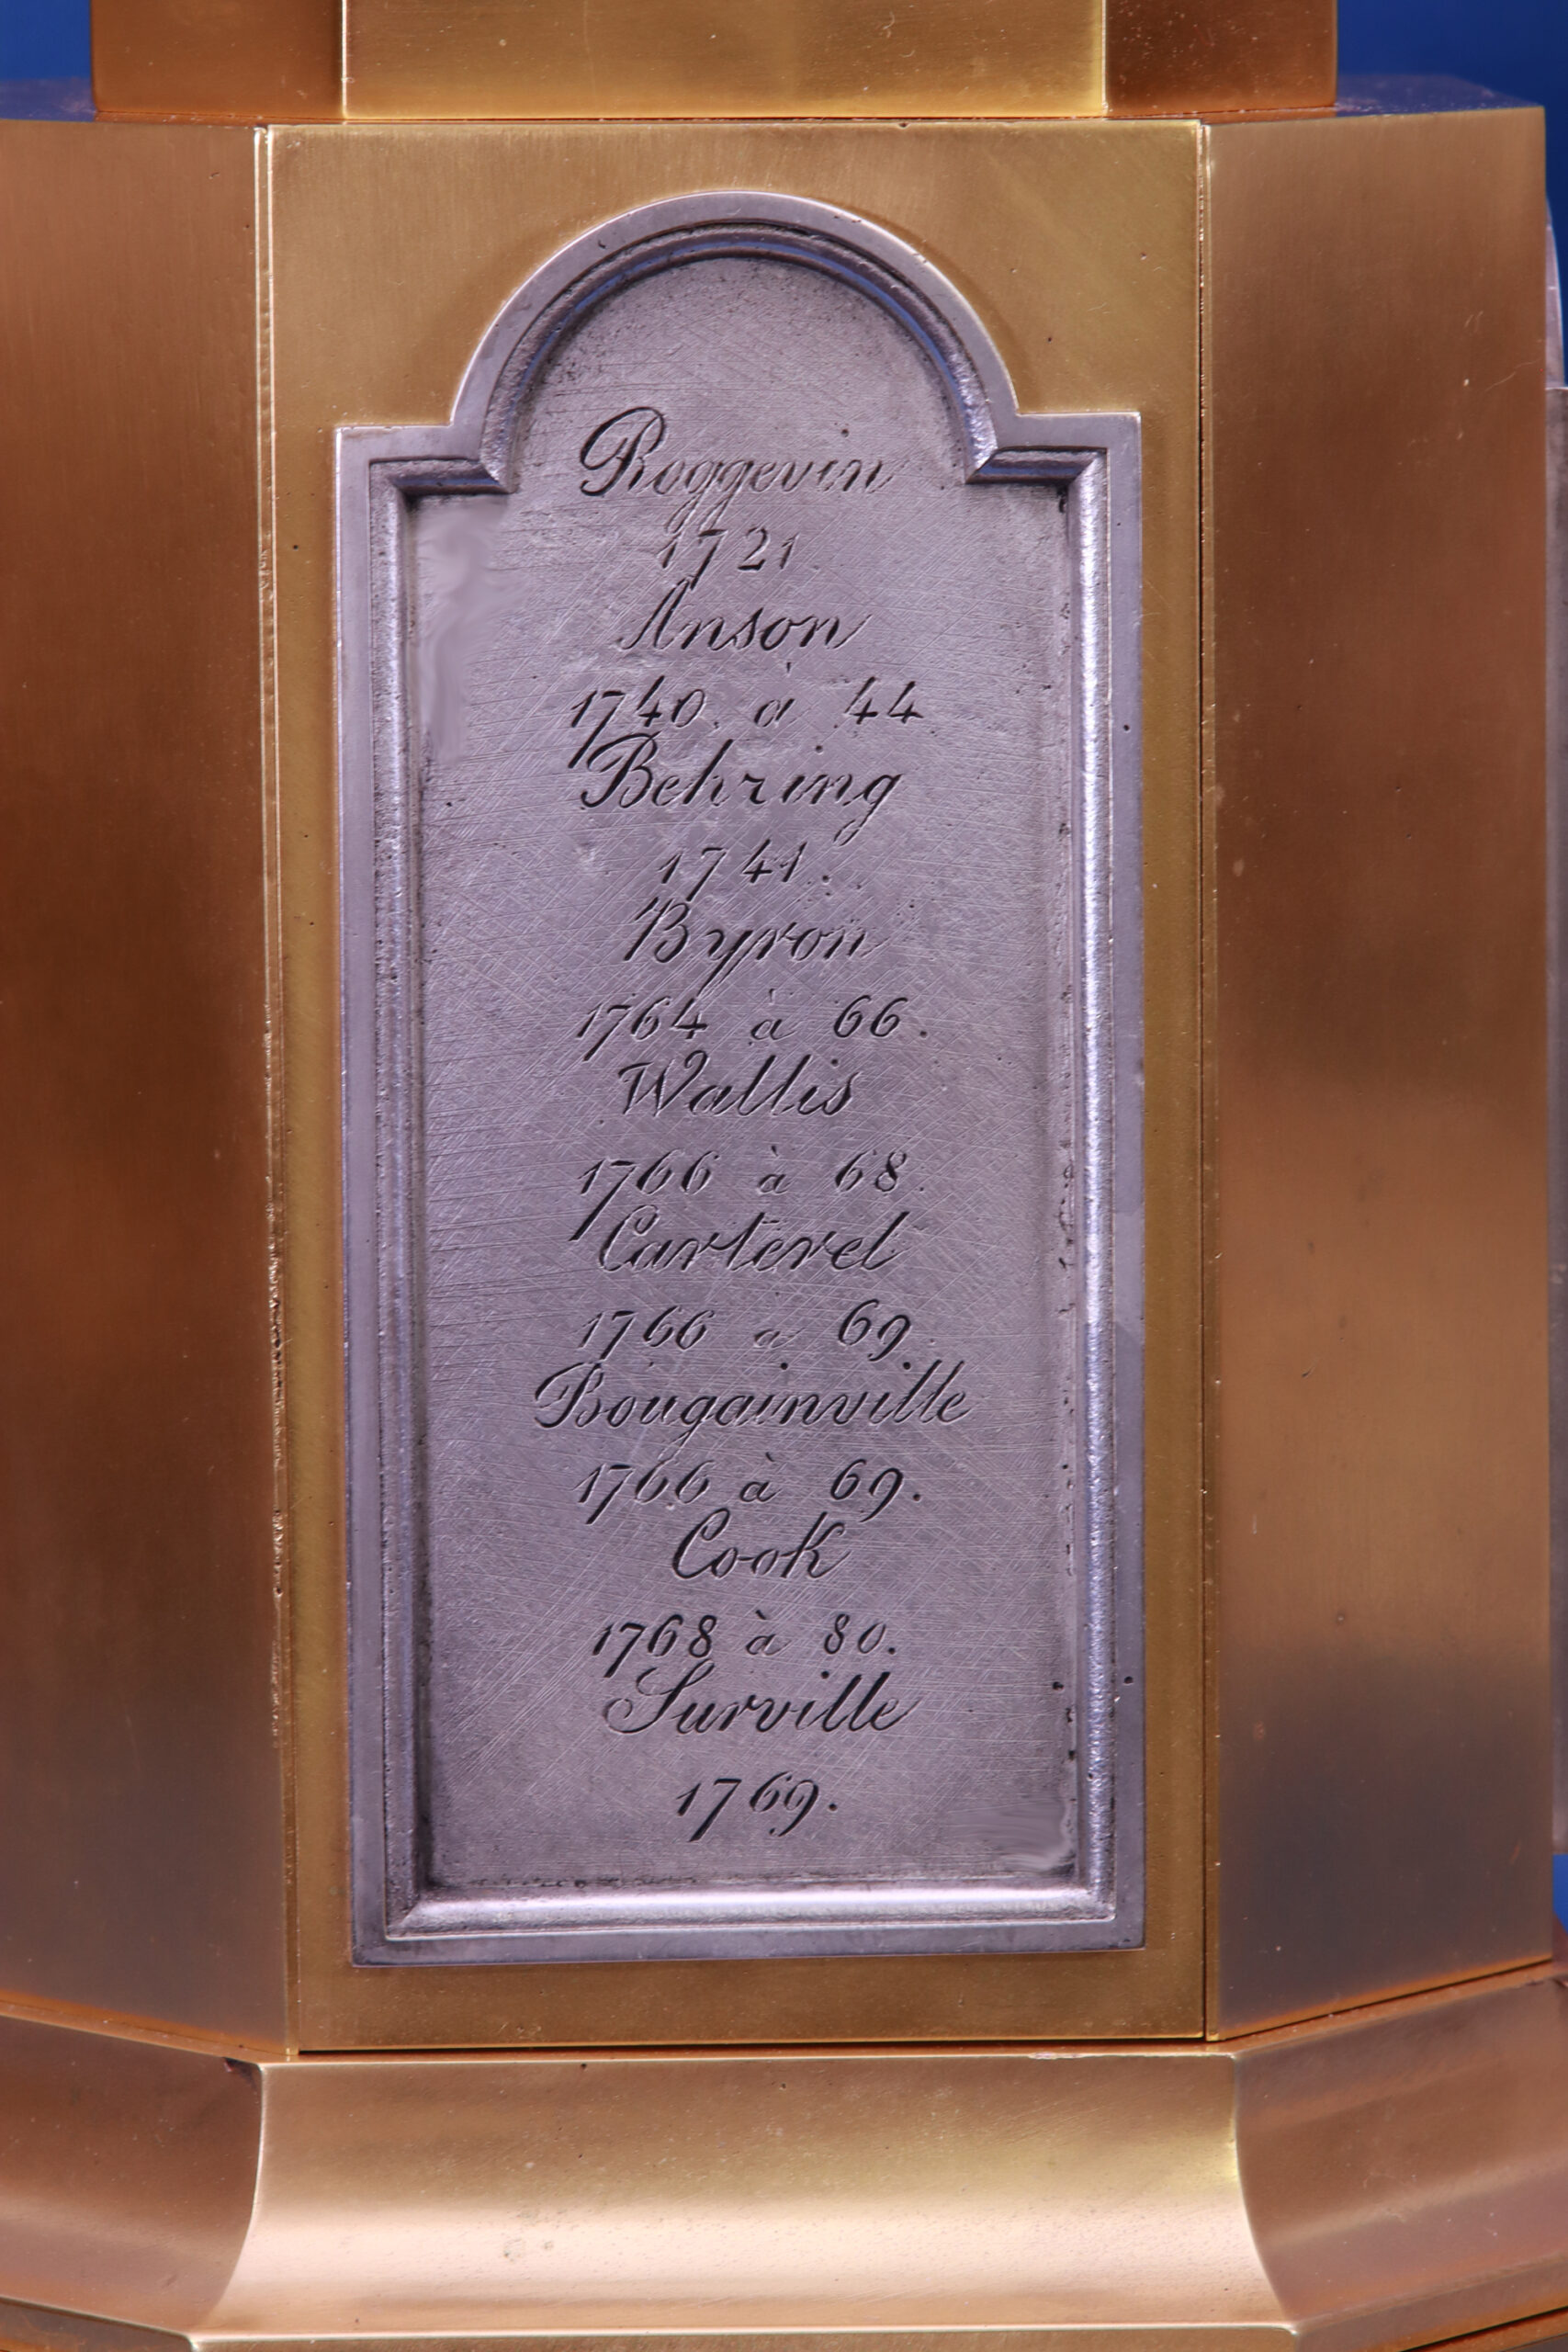 Roggevin
1721.
Anson
1740. à 44
Behring
1741.
Byron
1764 à 66.
Wallis
1766 à 68.
Carterel
1766 à 69.
Bougainville
1766 à 69.
Cook
1768 à 80.
Surville
1769.